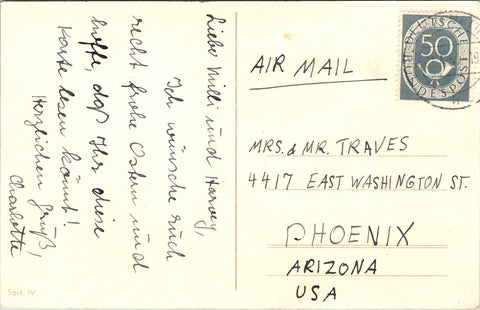 Liebe Milli und Harvey,
Ich wünsche Euch
recht frohe Ostern und
hoffe, daß Ihr diese
Karte lesen könnt!
Herzlichen Gruß!
Charlotte
Sort. IV
AIR MAIL
DEUTSCHE
BUNDESPOST
50
MRS. & MR. TRAVES
4417 EAST WASHINGTON ST.
PHOENIX
ARIZONA
USA